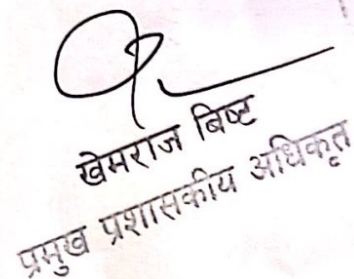 खेमराज बिष्ट
प्रमुख प्रशासकीय अधिकृत